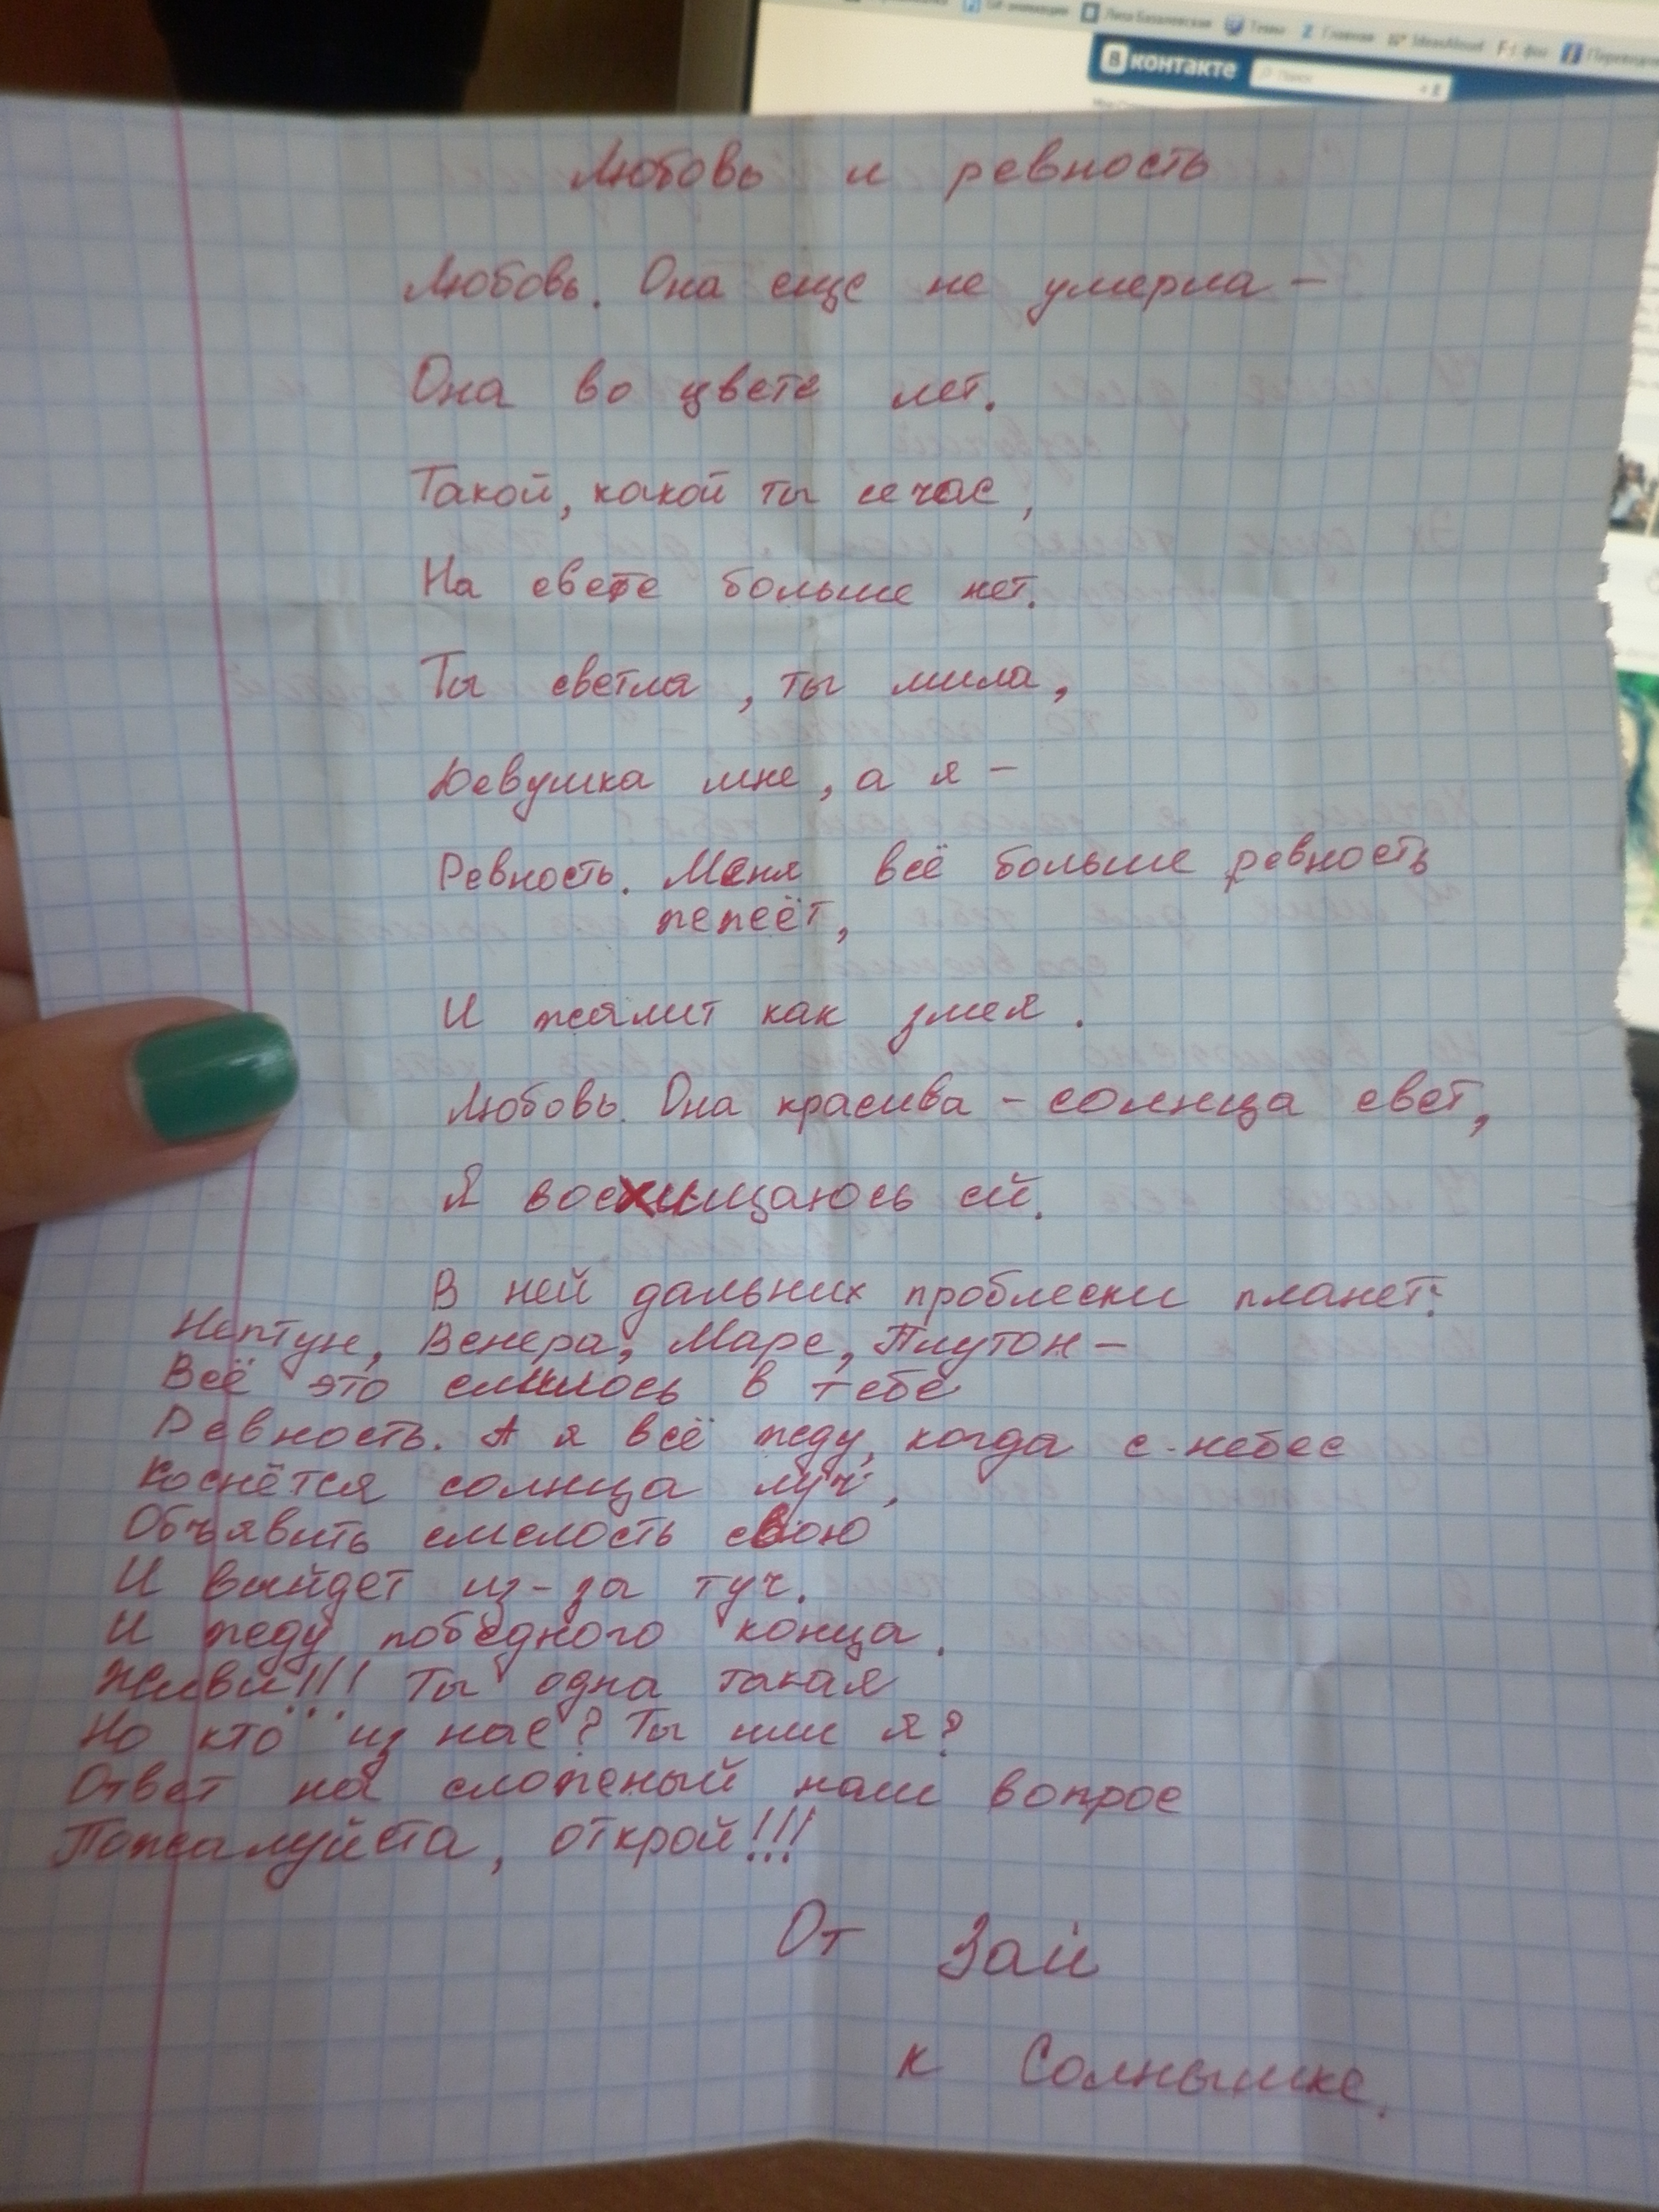 GIF-анимации
Лиза Базалевская
Темы
Главная
IdeasAloud
фоп
В контакте
Поиск
Любовь и ревность
Любовь. Она еще не умерла –
Она во цвете лет.
Такой, какой ты сечас,
На свете больше нет.
Ты светла, ты мила,
Девушка мне, а я –
Ревность. Меня всё больше ревность
жжёт,
И жалит как змея.
Любовь. Она красива – солнца свет,
Я восхищаюсь ей.
В ней дальних проблески планет:
Нептун, Венера, Марс, Плутон –
Всё это слилось в тебе
Ревность. А я всё жду, когда с небес
Коснётся солнца луч,
Объявить смелость свою
И выйдет из-за туч.
И жду победного конца.
Живи!!! Ты одна такая
Но кто из нас? Ты или я?
Ответ на сложный наш вопрос
Пожалуйста, открой!!!
От Заи
к Солнышке.